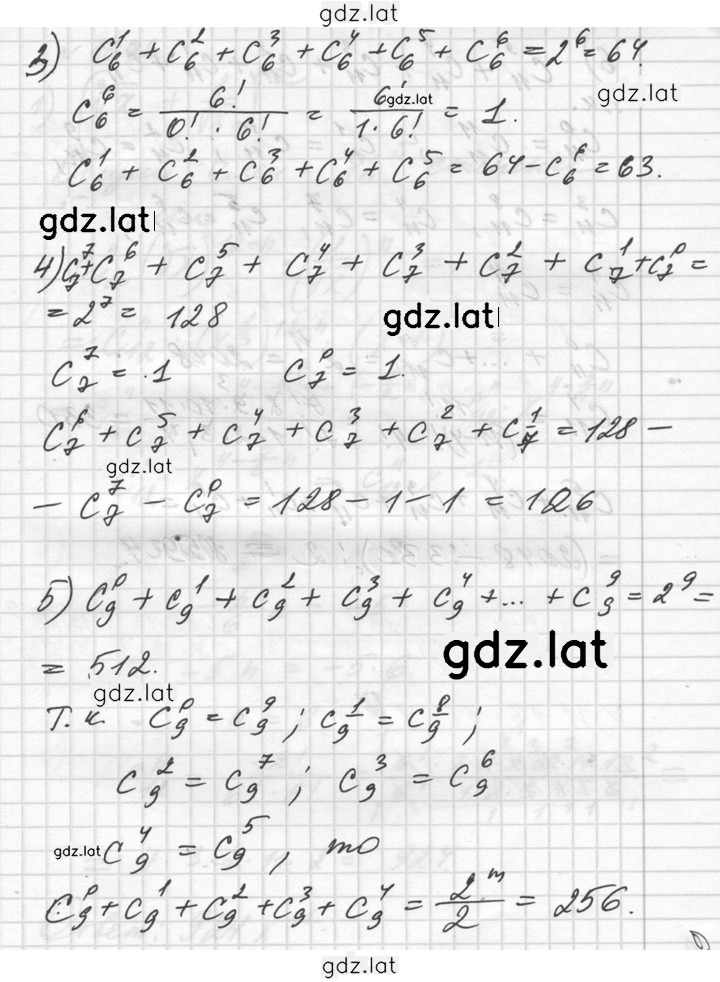 gdz.lat
3) C₆¹ + C₆² + C₆³ + C₆⁴ + C₆⁵ + C₆⁶ = 2⁶ = 64.
gdz.lat
C₆⁶ = 6! / (0! · 6!) = 6! / (1 · 6!) = 1.
gdz.lat
C₆¹ + C₆² + C₆³ + C₆⁴ + C₆⁵ = 64 − C₆⁶ = 63.
gdz.lat
4) C₇⁷ + C₇⁶ + C₇⁵ + C₇⁴ + C₇³ + C₇² + C₇¹ + C₇⁰ =
= 2⁷ = 128
gdz.lat
C₇⁷ = 1 C₇⁰ = 1.
C₇⁶ + C₇⁵ + C₇⁴ + C₇³ + C₇² + C₇¹ = 128 −
gdz.lat
− C₇⁷ − C₇⁰ = 128 − 1 − 1 = 126
5) C₉⁰ + C₉¹ + C₉² + C₉³ + C₉⁴ + ... + C₉⁹ = 2⁹ =
= 512.
gdz.lat
gdz.lat
Т.к. C₉⁰ = C₉⁹ ; C₉¹ = C₉⁸ ;
C₉² = C₉⁷ ; C₉³ = C₉⁶
gdz.lat
C₉⁴ = C₉⁵ , то
C₉⁰ + C₉¹ + C₉² + C₉³ + C₉⁴ = 2ᵐ / 2 = 256.
gdz.lat